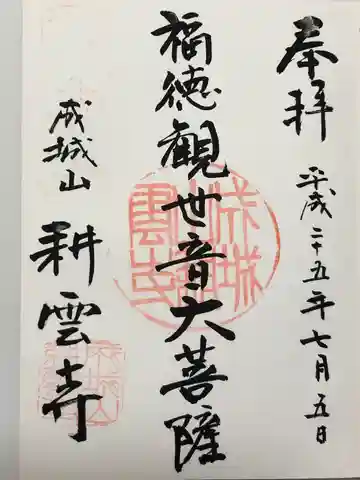 奉拝
平成二十五年七月五日
福徳観世音大菩薩
成城山
耕雲寺